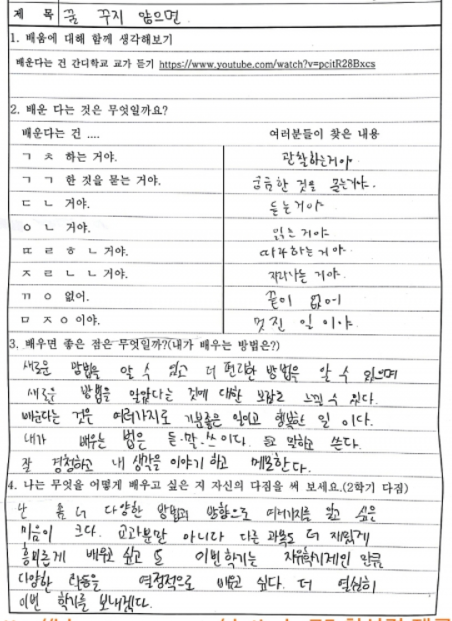 제 목 꿈 꾸지 않으면
1. 배움에 대해 함께 생각해보기
배운다는 건 간디학교 교가 듣기 https://www.youtube.com/watch?v=pcitR28Bxcs
2. 배운 다는 것은 무엇일까요?
배운다는 건 .... 여러분들이 찾은 내용
ㄱ ㅊ 하는 거야. 관찰하는거야
ㄱ ㄱ 한 것을 묻는 거야. 궁금한 것을 묻는거야.
ㄷ ㄴ 거야. 듣는거야
ㅇ ㄴ 거야. 읽는 거야
ㄸ ㄹ ㅎ ㄴ 거야. 따라하는 거야
ㅈ ㄹ ㄴ ㄴ 거야. 자라나는 거야.
ㄲ ㅇ 없어. 끝이 없어
ㅁ ㅈ ㅇ 이야. 멋진 일 이야
3. 배우면 좋은 점은 무엇일까?(내가 배우는 방법은?)
새로운 방법을 알 수 있고 더 편리한 방법을 알 수 있으며
새로운 방법을 알았다는 것에 대한 보람도 느낄 수 있다.
배운다는 것은 여러가지로 기분좋은 일이고 행복한 일 이다.
내가 배우는 법은 듣·말·쓰이다. 듣고 말하고 쓴다.
잘 경청하고 내 생각을 이야기 하고 메모한다.
4. 나는 무엇을 어떻게 배우고 싶은 지 자신의 다짐을 써 보세요.(2학기 다짐)
난 좀 더 다양한 방법과 방향으로 여러가지를 알고 싶은
마음이 크다. 교과뿐만 아니다 다른 과목도 더 재밌게
흥미롭게 배우고 싶고 또 이번학기는 자유학기제인 만큼
다양한 활동을 열정적으로 배우고 싶다. 더 열심히
이번 학기를 보내겠다.